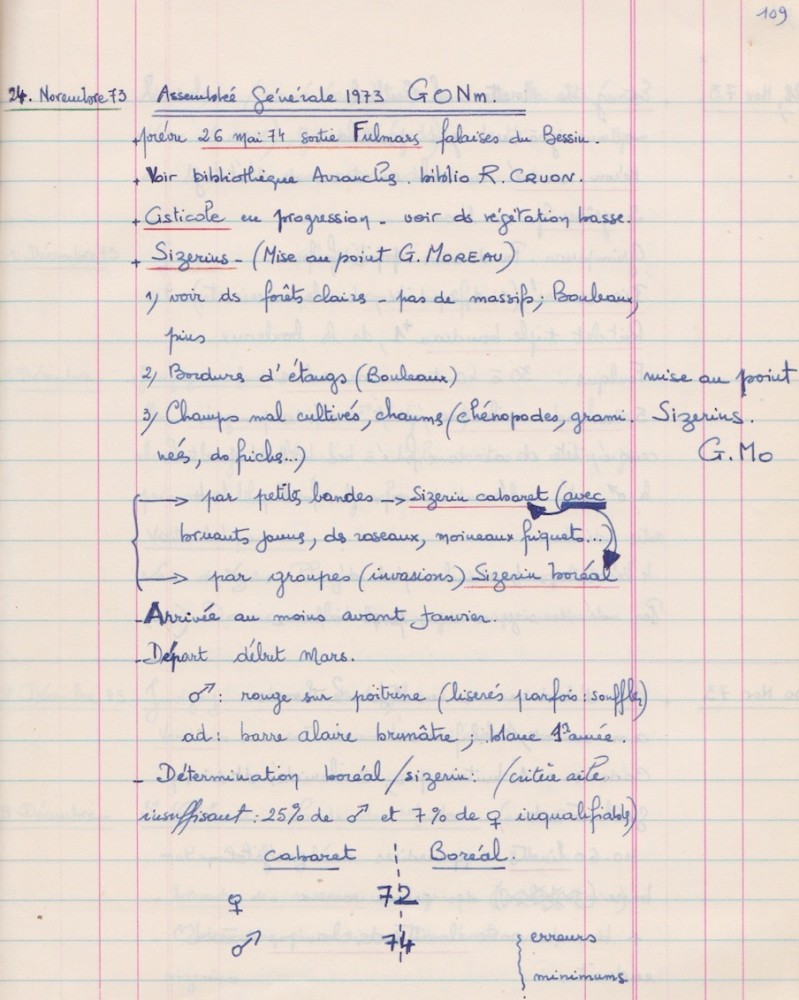 109
24. Novembre 73 Assemblée Générale 1973 GONm.
+ prévu 26 mai 74 sortie Fulmars falaises du Bessin.
+ Voir bibliothèque Avranches. biblio R. CRUON.
+ Cisticole en progression - voir ds végétation basse.
+ Sizerins - (Mise au point G. MOREAU)
1) voir ds forêts claires - pas de massifs; Bouleaux,
pins
2) Bordures d'étangs (Bouleaux) mise au point
3) Champs mal cultivés, chaumes (chénopodes, grami. Sizerins.
nées, ds friches...) G. Mo
→ par petites bandes → Sizerin cabaret (avec
bruants jaunes, des roseaux, moineaux friquets...)
→ par groupes (invasions) Sizerin boréal
- Arrivée au moins avant Janvier.
- Départ début Mars.
♂: rouge sur poitrine (liserés parfois: souffler)
ad: barre alaire brunâtre; blanc 1re année.
- Détermination boréal/sizerin: /critère aile
insuffisant: 25% de ♂ et 7% de ♀ inqualifiables)
cabaret ¦ Boréal.
♀ 72
♂ 74 { erreurs
minimums